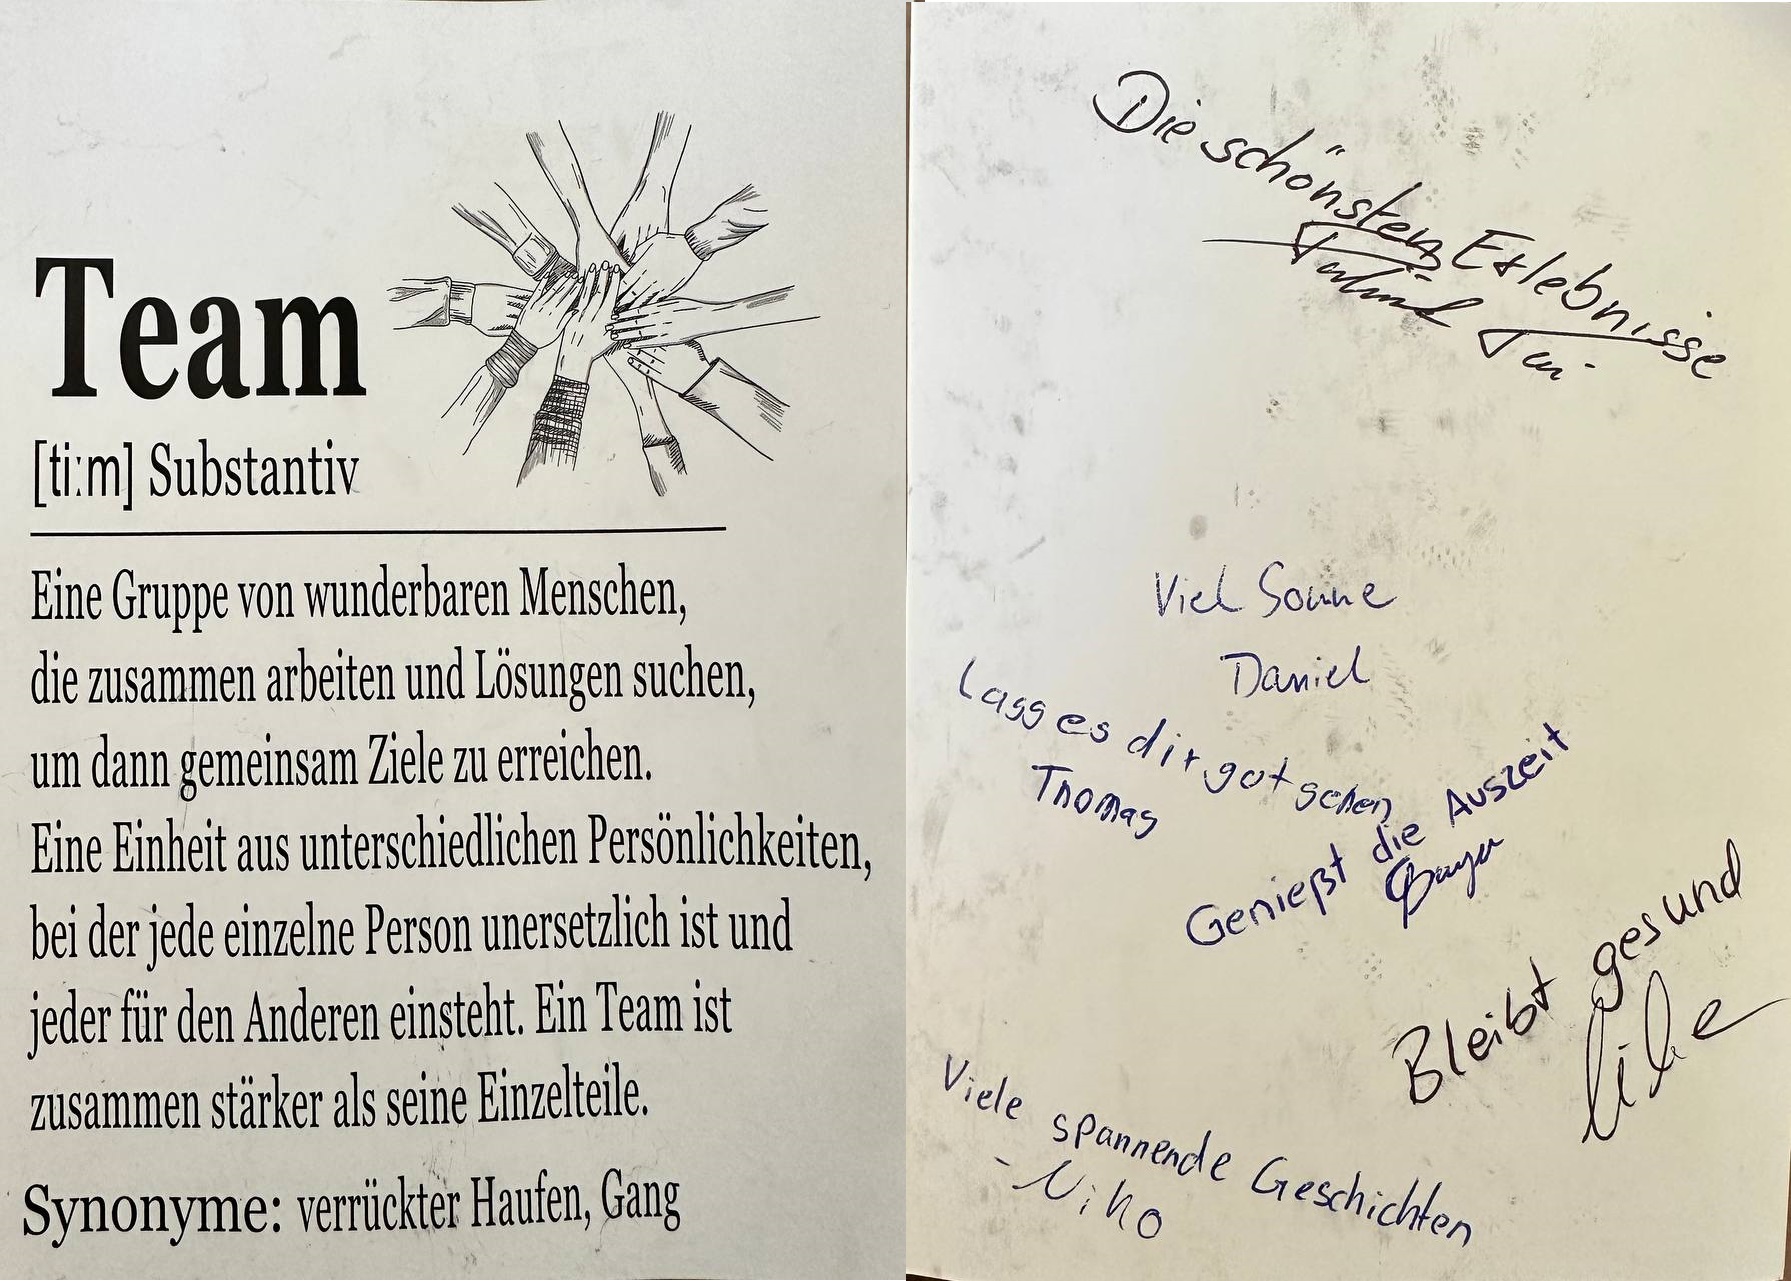 Team
[ti:m] Substantiv
Eine Gruppe von wunderbaren Menschen,
die zusammen arbeiten und Lösungen suchen,
um dann gemeinsam Ziele zu erreichen.
Eine Einheit aus unterschiedlichen Persönlichkeiten,
bei der jede einzelne Person unersetzlich ist und
jeder für den Anderen einsteht. Ein Team ist
zusammen stärker als seine Einzelteile.
Synonyme: verrückter Haufen, Gang
Die schönsten Erlebnisse
Viel Sonne
Daniel
Lass es dir gut gehen
Thomas
Genießt die Auszeit
Bleibt gesund
Viele spannende Geschichten
- Niko